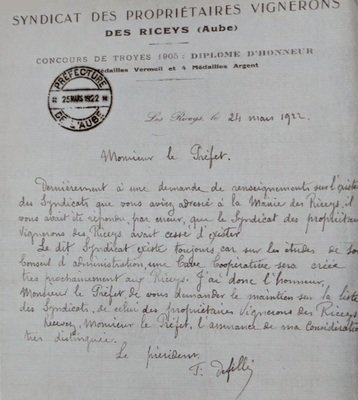 SYNDICAT DES PROPRIÉTAIRES VIGNERONS
DES RICEYS (Aube)
CONCOURS DE TROYES 1905 : DIPLOME D'HONNEUR
Médailles Vermeil et 4 Médailles Argent
PRÉFECTURE
25 MARS 1922
DE L'AUBE
Les Riceys, le 24 mars 1922.
Monsieur le Préfet.
Dernièrement à une demande de renseignements sur l'existe
des Syndicats que vous aviez adressé à la Mairie des Riceys, il
vous avait été répondu, par erreur, que le Syndicat des propriétair
Vignerons des Riceys avait cessé d'exister
Le dit Syndicat existe toujours car sur les études de son
Conseil d'administration, une Cave Coopérative sera créée
très prochainement aux Riceys. J'ai donc l'honneur
Monsieur le Préfet de vous demander le maintien sur la liste
des Syndicats, de celui des propriétaires Vignerons des Riceys
Recevez, Monsieur le Préfet, l'assurance de ma Considération
très distinguée.
Le président